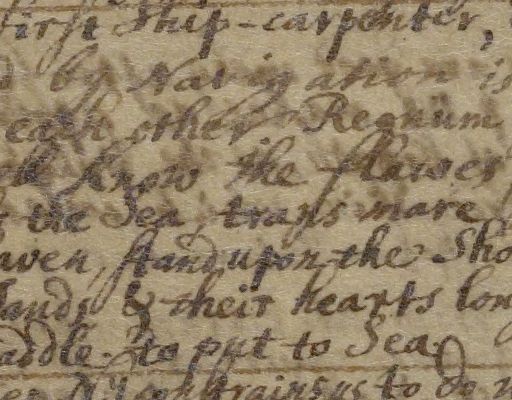 first Ship-carpenter,
by Navigation is
each other Regnum
know the flawes
the Sea, trans mare
aven, stand upon the Sho
Lands & their hearts long
addle. to put to Sea.
constrains us to do